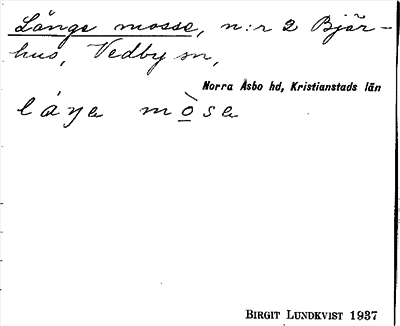 Långe mosse, n:r 2 Bjär-
hus, Vedby sn,
Norra Åsbo hd, Kristianstads län
láŋe mòse
BIRGIT LUNDKVIST 1937